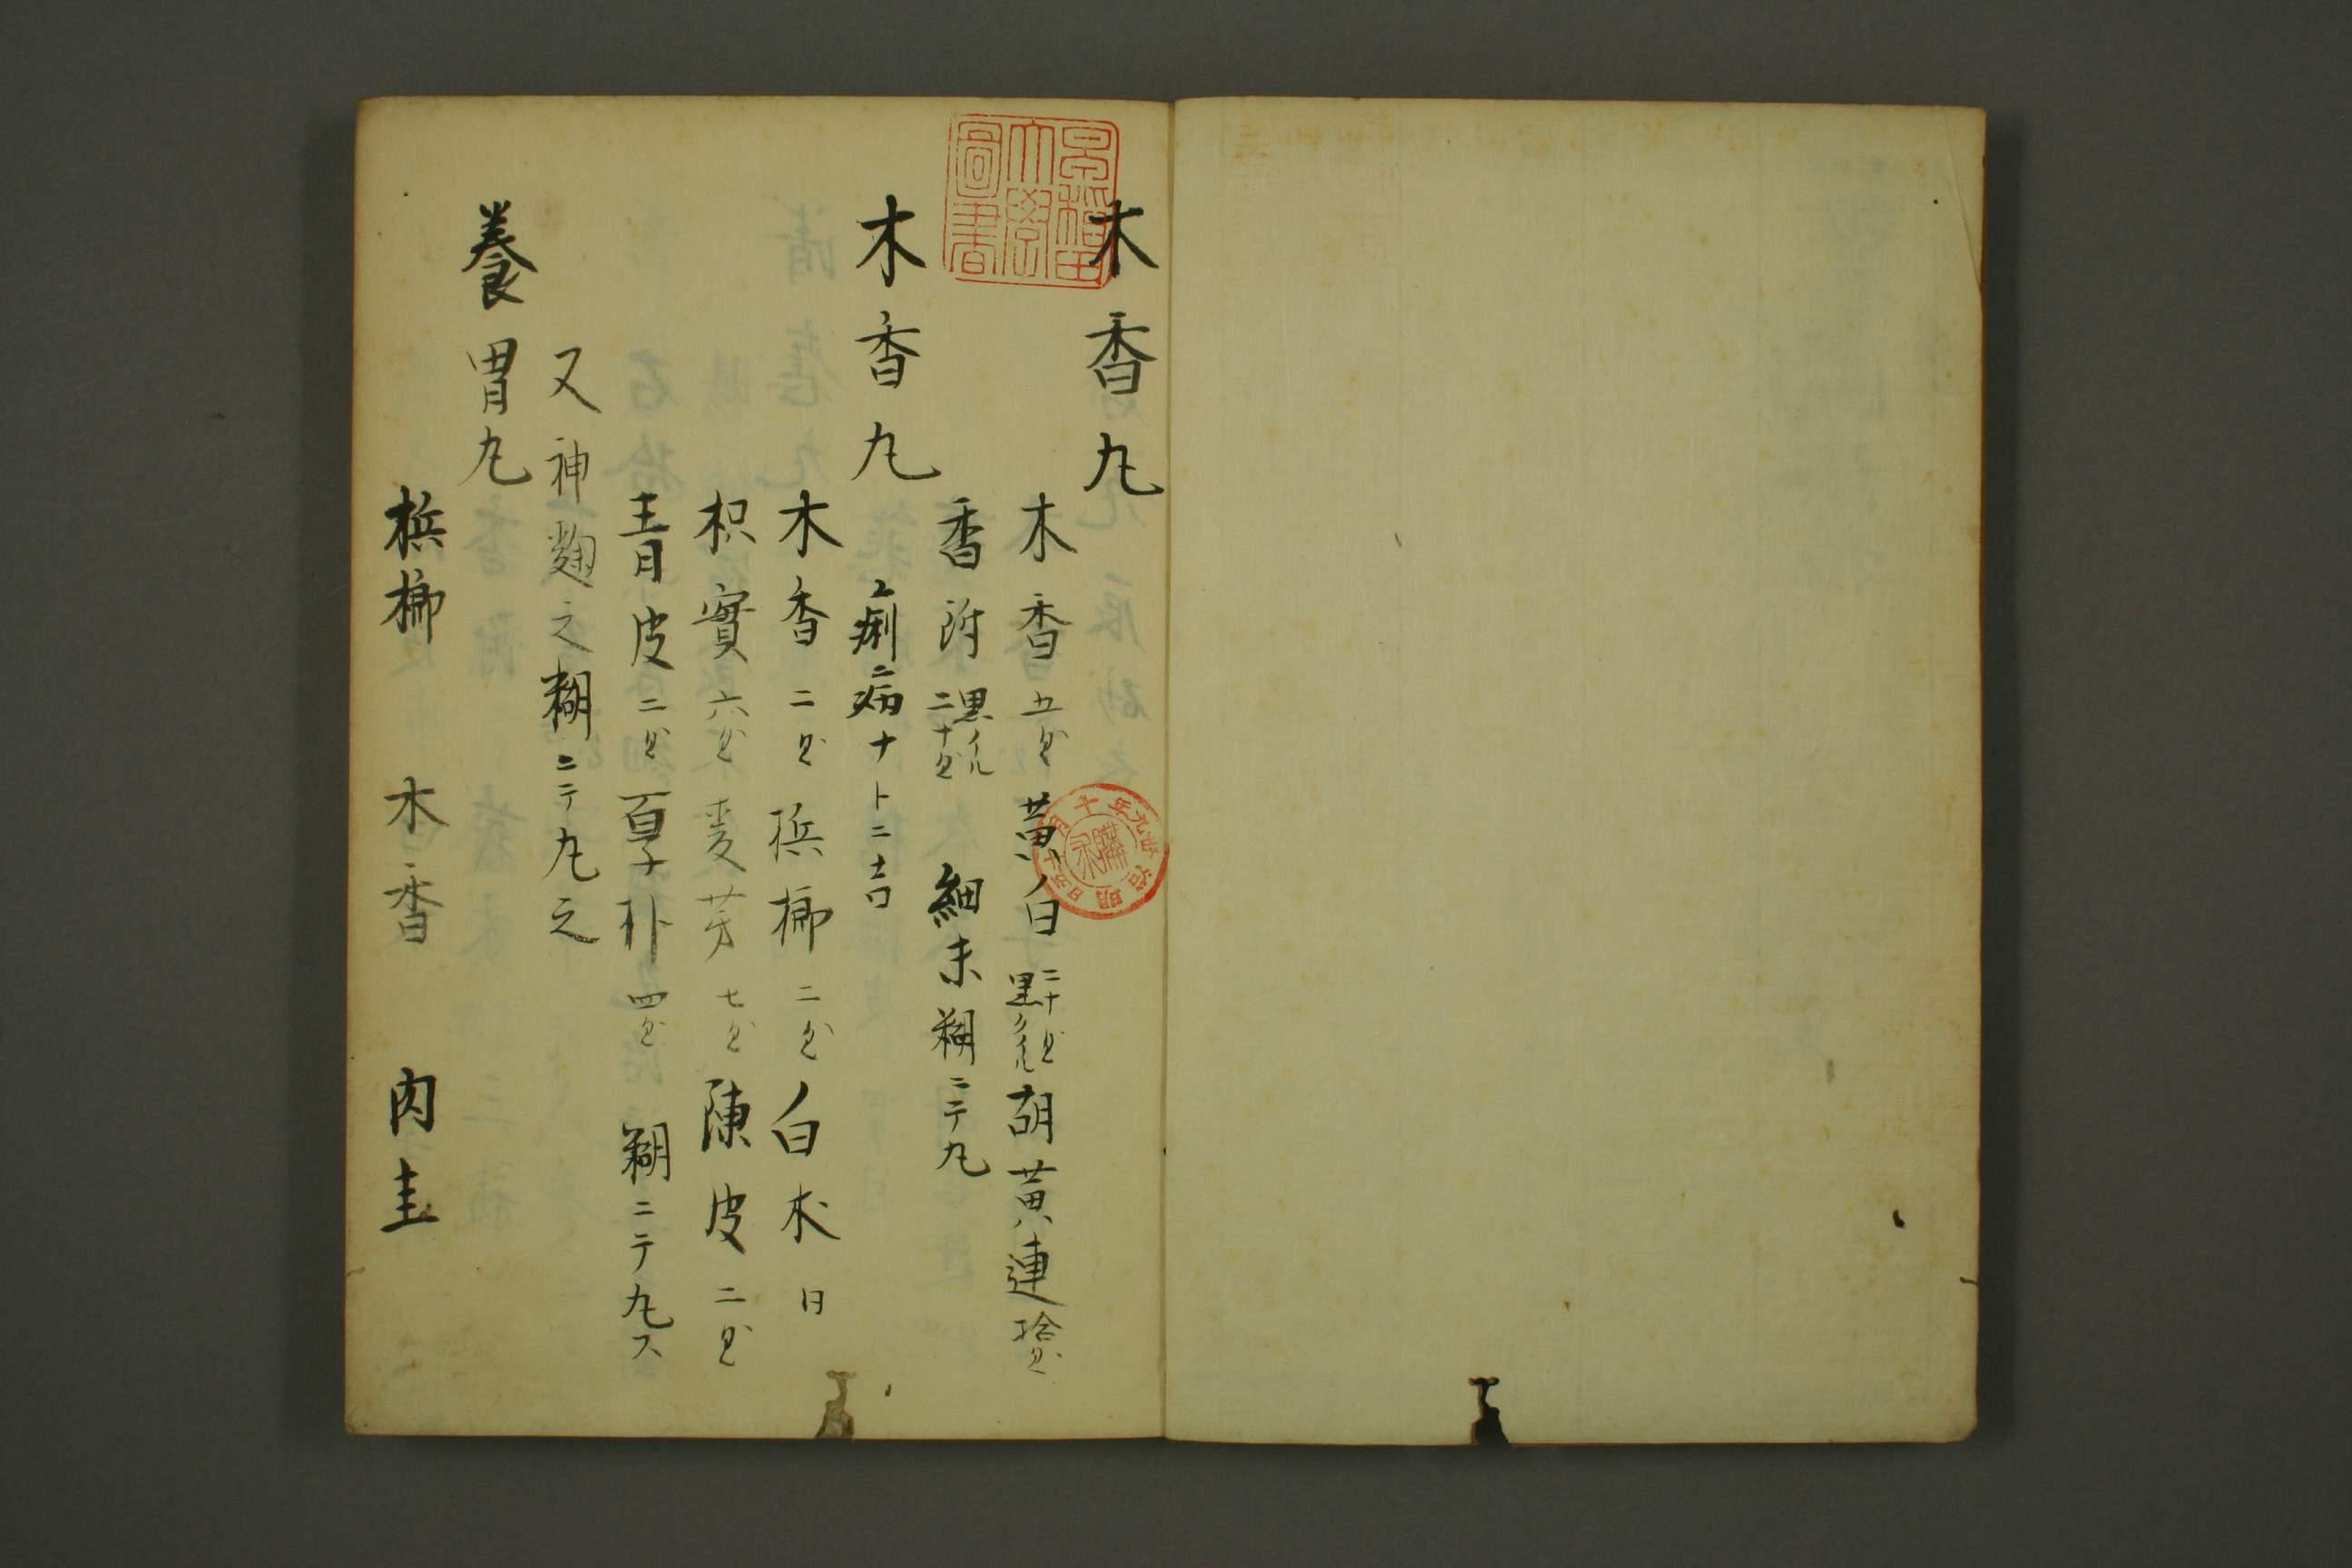 木香丸
木香 五匁 黄白 二十匁 黒クイル 胡黄連 拾匁
香附 黒イル 二十匁 細末糊ニテ丸
木香丸
痢病ナトニ吉
木香 二匁 梹榔 二匁 白朮 日
枳實 六匁 麦芽 七匁 陳皮 二匁
青皮 二匁 厚朴 四匁 糊ニテ丸ス
又神麹之糊ニテ丸之
養胃丸
梹榔 木香 肉圭
早稲田大學圖書
明治元年十月十五日 購求